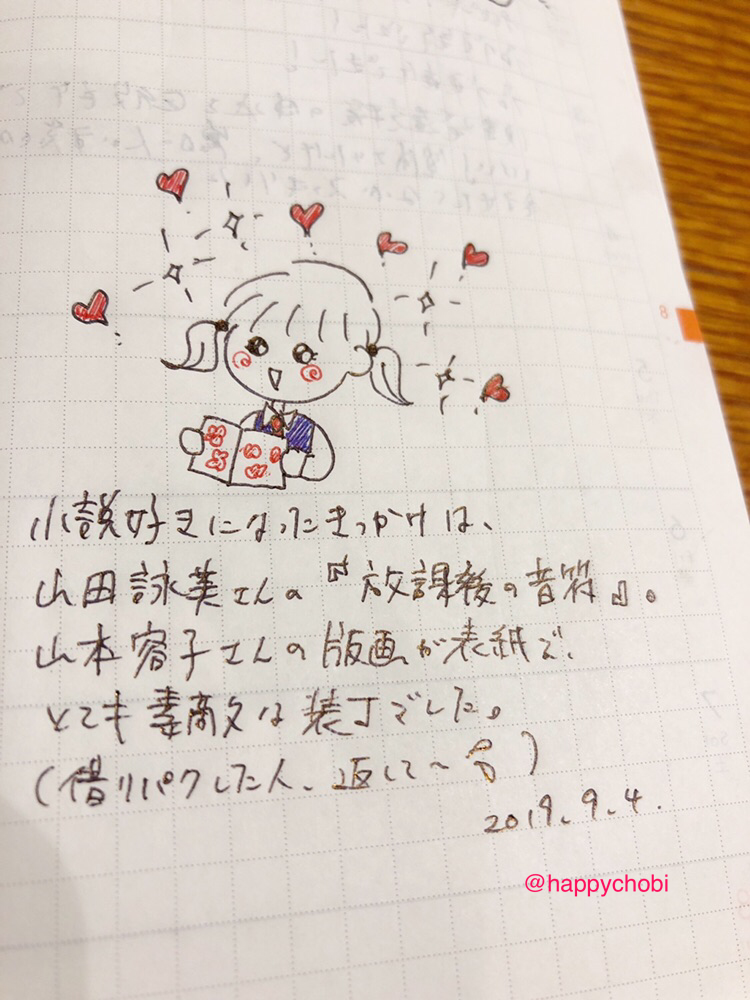 小説好きになったきっかけは、
山田詠美さんの『放課後の音符』。
山本容子さんの版画が表紙で、
とても素敵な装丁でした。
(借りパクした人、返して〜)
2019.9.4.
@happychobi
8
5
6
7